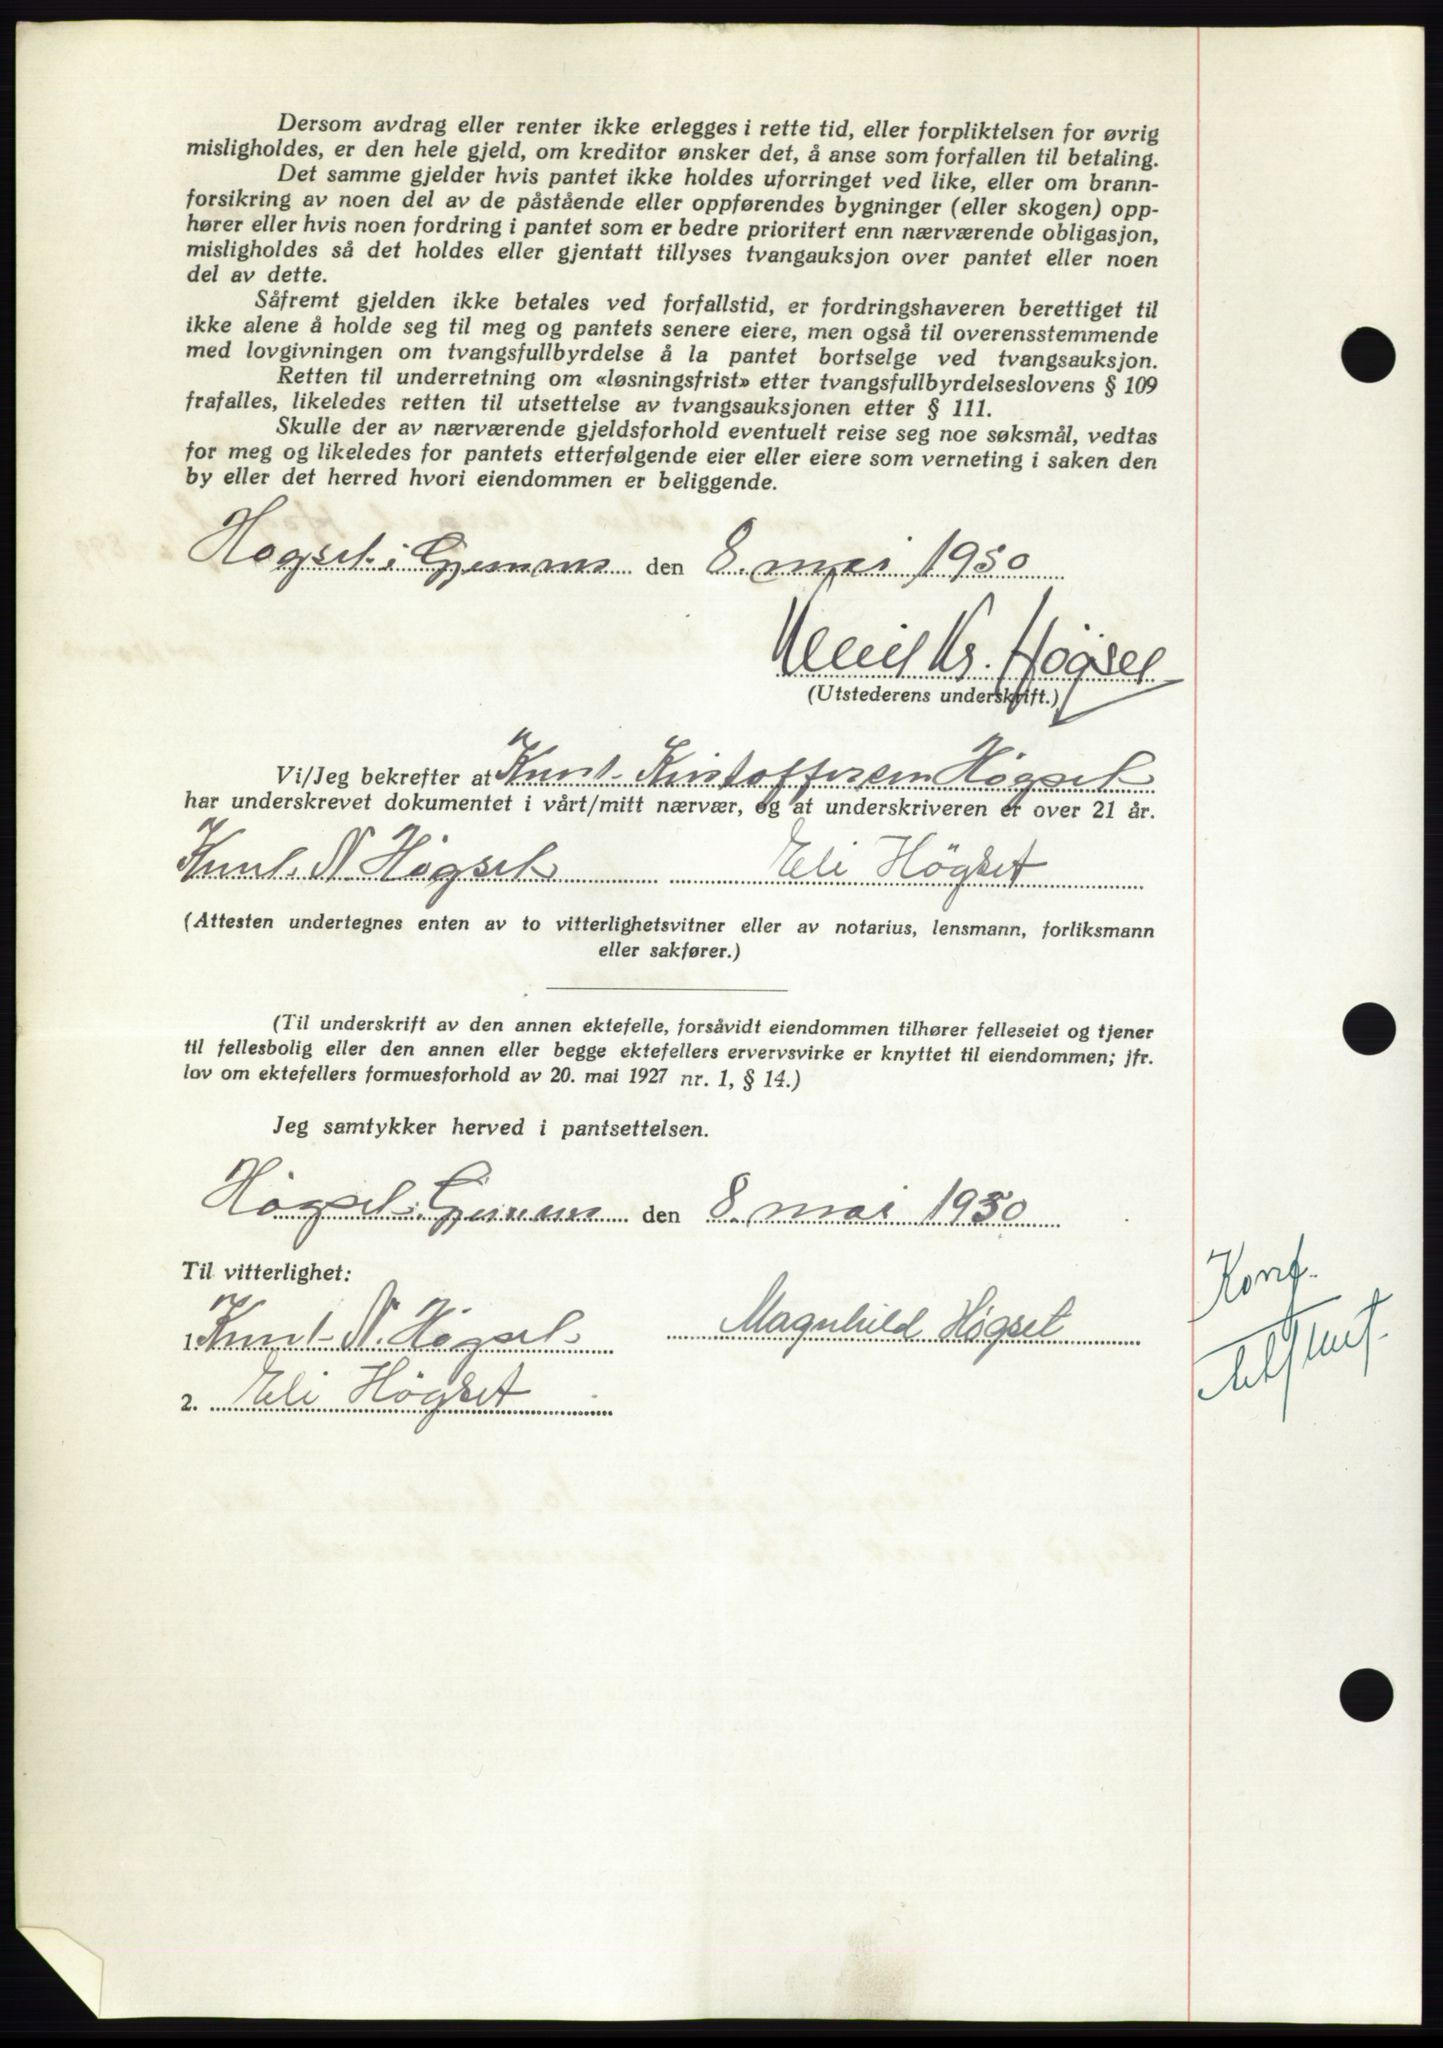 Dersom avdrag eller renter ikke erlegges i rette tid, eller forpliktelsen for øvrig
misligholdes, er den hele gjeld, om kreditor ønsker det, å anse som forfallen til betaling.
Det samme gjelder hvis pantet ikke holdes uforringet ved like, eller om brann-
forsikring av noen del av de påstående eller oppførendes bygninger (eller skogen) opp-
hører eller hvis noen fordring i pantet som er bedre prioritert enn nærværende obligasjon,
misligholdes så det holdes eller gjentatt tillyses tvangauksjon over pantet eller noen
del av dette.
Såfremt gjelden ikke betales ved forfallstid, er fordringshaveren berettiget til
ikke alene å holde seg til meg og pantets senere eiere, men også til overensstemmende
med lovgivningen om tvangsfullbyrdelse å la pantet bortselge ved tvangsauksjon.
Retten til underretning om «løsningsfrist» etter tvangsfullbyrdelseslovens § 109
frafalles, likeledes retten til utsettelse av tvangsauksjonen etter § 111.
Skulle der av nærværende gjeldsforhold eventuelt reise seg noe søksmål, vedtas
for meg og likeledes for pantets etterfølgende eier eller eiere som verneting i saken den
by eller det herred hvori eiendommen er beliggende.
Høgset i Gjemnes den 8. mai 1950
Kr. Høgset
(Utstederens underskrift.)
Vi/Jeg bekrefter at Knut Kristoffersen Høgset
har underskrevet dokumentet i vårt/mitt nærvær, og at underskriveren er over 21 år.
Knut N. Høgset Eli Högset
(Attesten undertegnes enten av to vitterlighetsvitner eller av notarius, lensmann, forliksmann
eller sakfører.)
(Til underskrift av den annen ektefelle, forsåvidt eiendommen tilhører felleseiet og tjener
til fellesbolig eller den annen eller begge ektefellers ervervsvirke er knyttet til eiendommen; jfr.
lov om ektefellers formuesforhold av 20. mai 1927 nr. 1, § 14.)
Jeg samtykker herved i pantsettelsen.
Høgset i Gjemnes den 8. mai 1950
Til vitterlighet:
1. Knut N. Høgset Magnhild Høgset
2. Eli Högset
Konf.